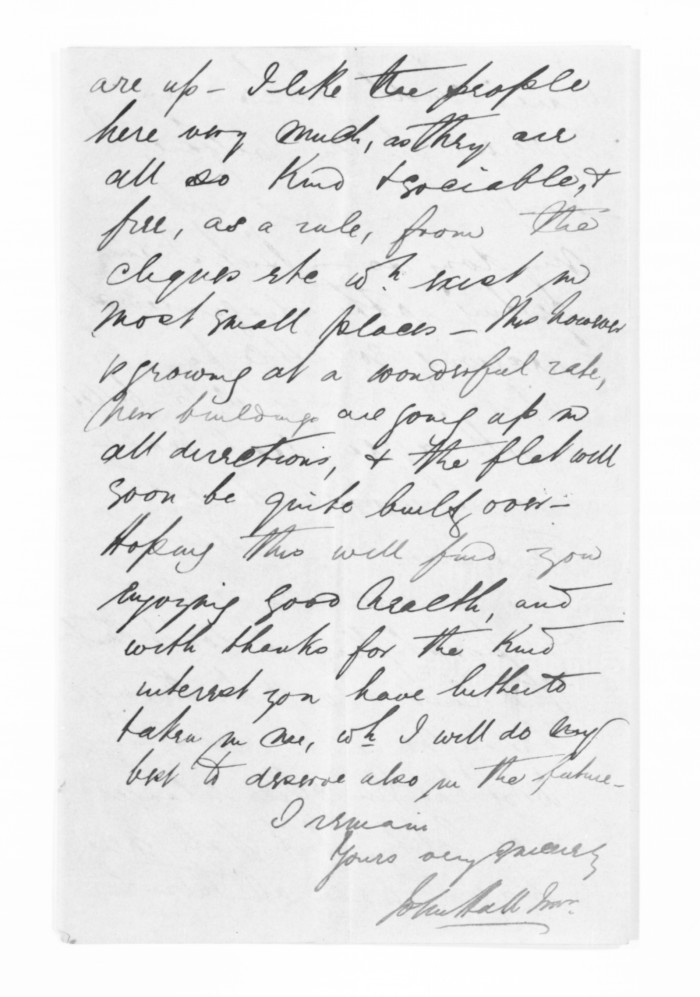 are up – I like the people
here very much, as they are
all so kind & sociable, &
free, as a rule, from the
cliques etc wh exist in
most small places – This however
is growing at a wonderful rate,
New buildings are going up in
all directions, & the flat will
soon be quite built over –
Hoping this will find you
enjoying good health, and
with thanks for the kind
interest you have hitherto
taken in me, wh I will do my
best to deserve also in the future –
I remain
Yours very sincerely
John Hall Jnr.